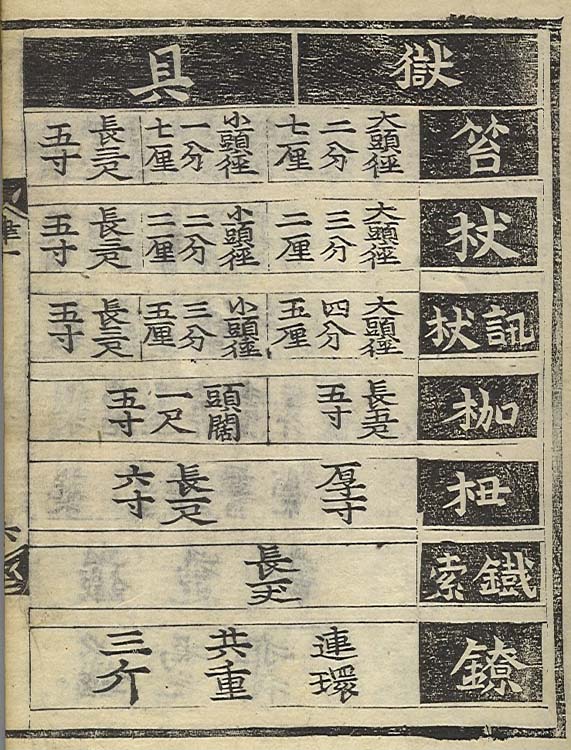 獄具
笞
大頭徑
二分
七厘
小頭徑
一分
七厘
長三尺
五寸
杖
大頭徑
三分
二厘
小頭徑
二分
二厘
長三尺
五寸
訊杖
大頭徑
四分
五厘
小頭徑
三分
五厘
長三尺
五寸
枷
長五尺
五寸
頭闊
一尺
五寸
杻
厚一寸
長一尺
六寸
鐵索
長一丈
鐐
連環
共重
三斤